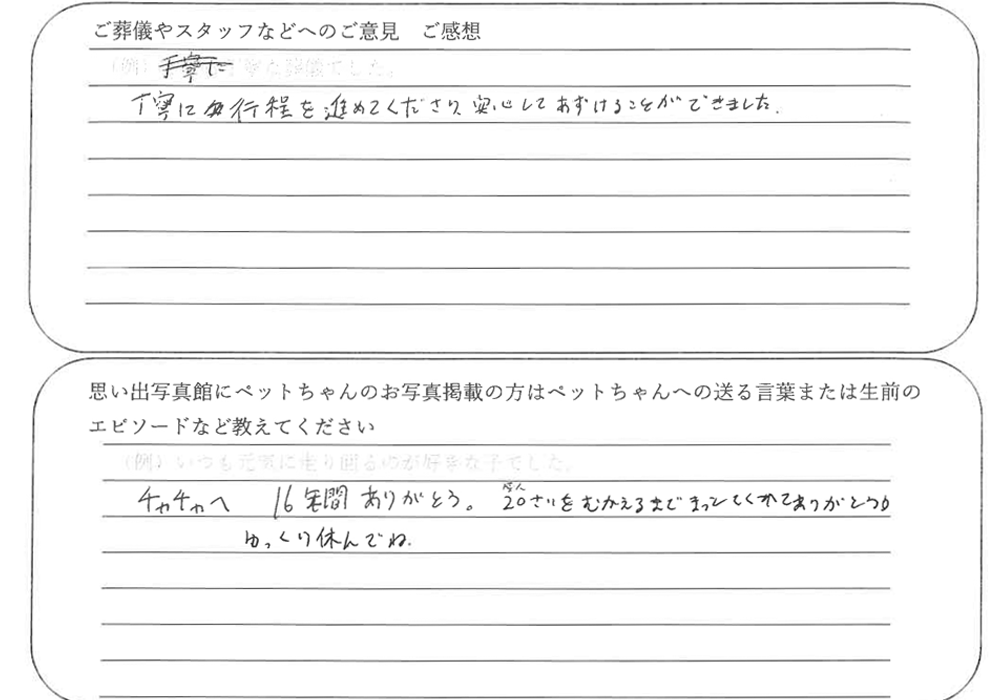 ご葬儀やスタッフなどへのご意見　ご感想
丁寧に毎行程を進めてくださり、安心してあずけることができました。
思い出写真館にペットちゃんのお写真掲載の方はペットちゃんへの送る言葉または生前の
エピソードなど教えてください
（例）いつも元気に走り回るのが好きな子でした。
チャチャへ　16年間ありがとう。 20さいをむかえるまでまっててくれてありがとう。
ゆっくり休んでね。